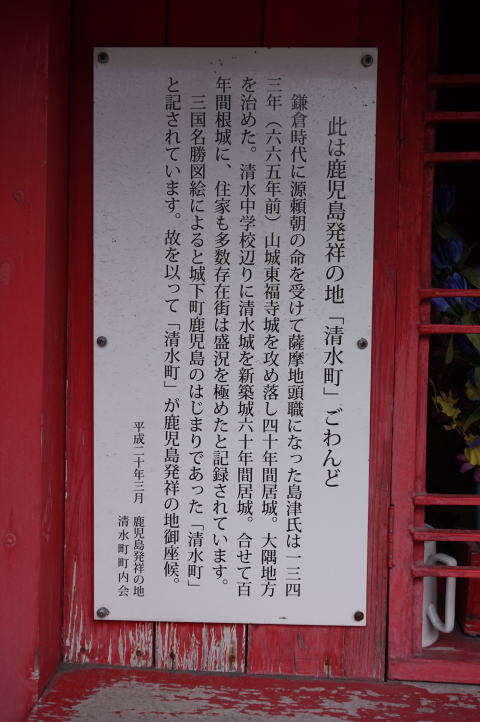 此は鹿児島発祥の地「清水町」ごわんど
鎌倉時代に源頼朝の命を受けて薩摩地頭職になった島津氏は一三四
三年(六六五年前)山城東福寺城を攻め落し四十年間居城。大隅地方
を治めた。清水中学校辺りに清水城を新築城六十年間居城。合せて百
年間根城に、住家も多数存在街は盛況を極めたと記録されています。
三国名勝図絵によると城下町鹿児島のはじまりであった「清水町」
と記されています。故を以って「清水町」が鹿児島発祥の地御座候。
平成二十年三月 鹿児島発祥の地
清水町町内会